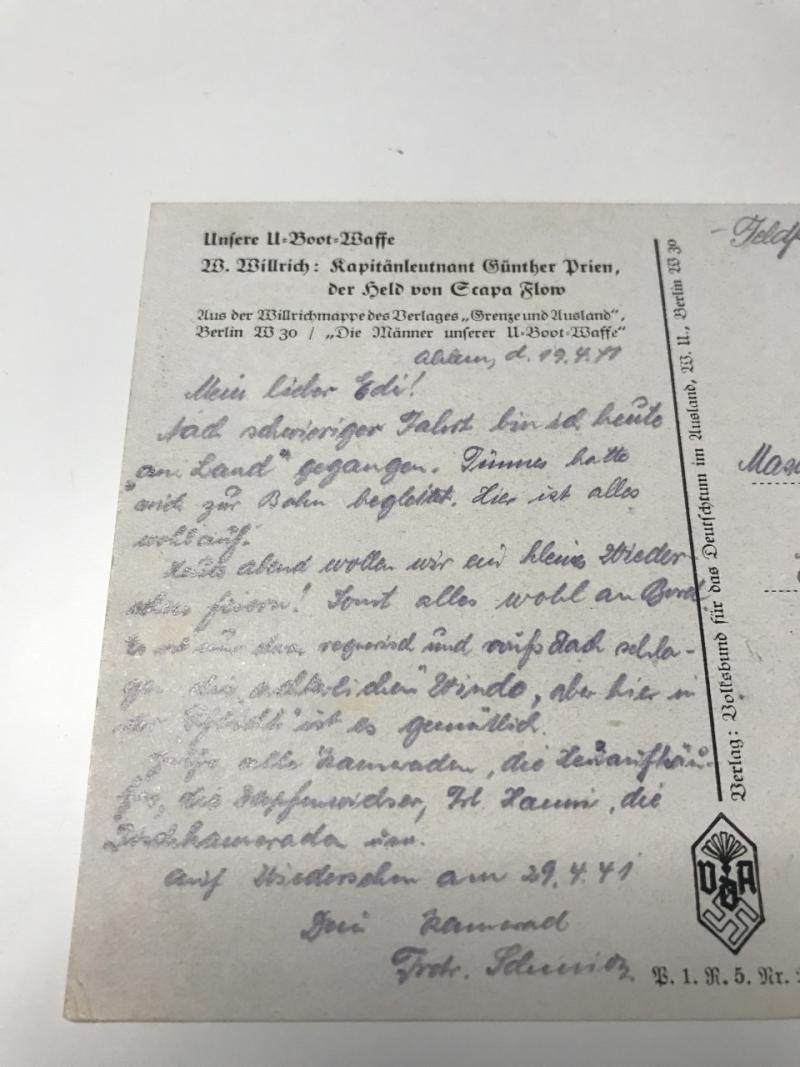 Unsere U-Boot-Waffe
W. Willrich: Kapitänleutnant Günther Prien,
der Held von Scapa Flow
Aus der Willrichmappe des Verlages „Grenze und Ausland“,
Berlin W 30 / „Die Männer unserer U-Boot-Waffe“
Ahlen, d. 19.4.41
Mein lieber Edi!
Nach schwieriger Fahrt bin ich heute
„an Land“ gegangen. Tünnes hatte
mich zur Bahn begleitet. Hier ist alles
wohlauf.
Heute abend wollen wir ein kleines Wieder-
sehen feiern! Sonst alles wohl an Bord
Es ist nur etwas regnerisch und aufs Dach schla-
gen die achterlichen Winde, aber hier in
der ist es gemütlich.
Grüße alle Kameraden, die
die Fr. Hanni, die
Tischkameraden usw.
Auf Wiedersehen am 29.4.41
Dein Kamerad
Frdr. Schmitz
Verlag: Volksbund für das Deutschtum im Ausland, W. U., Berlin W 30
VDA
P. 1. R. 5. Nr.